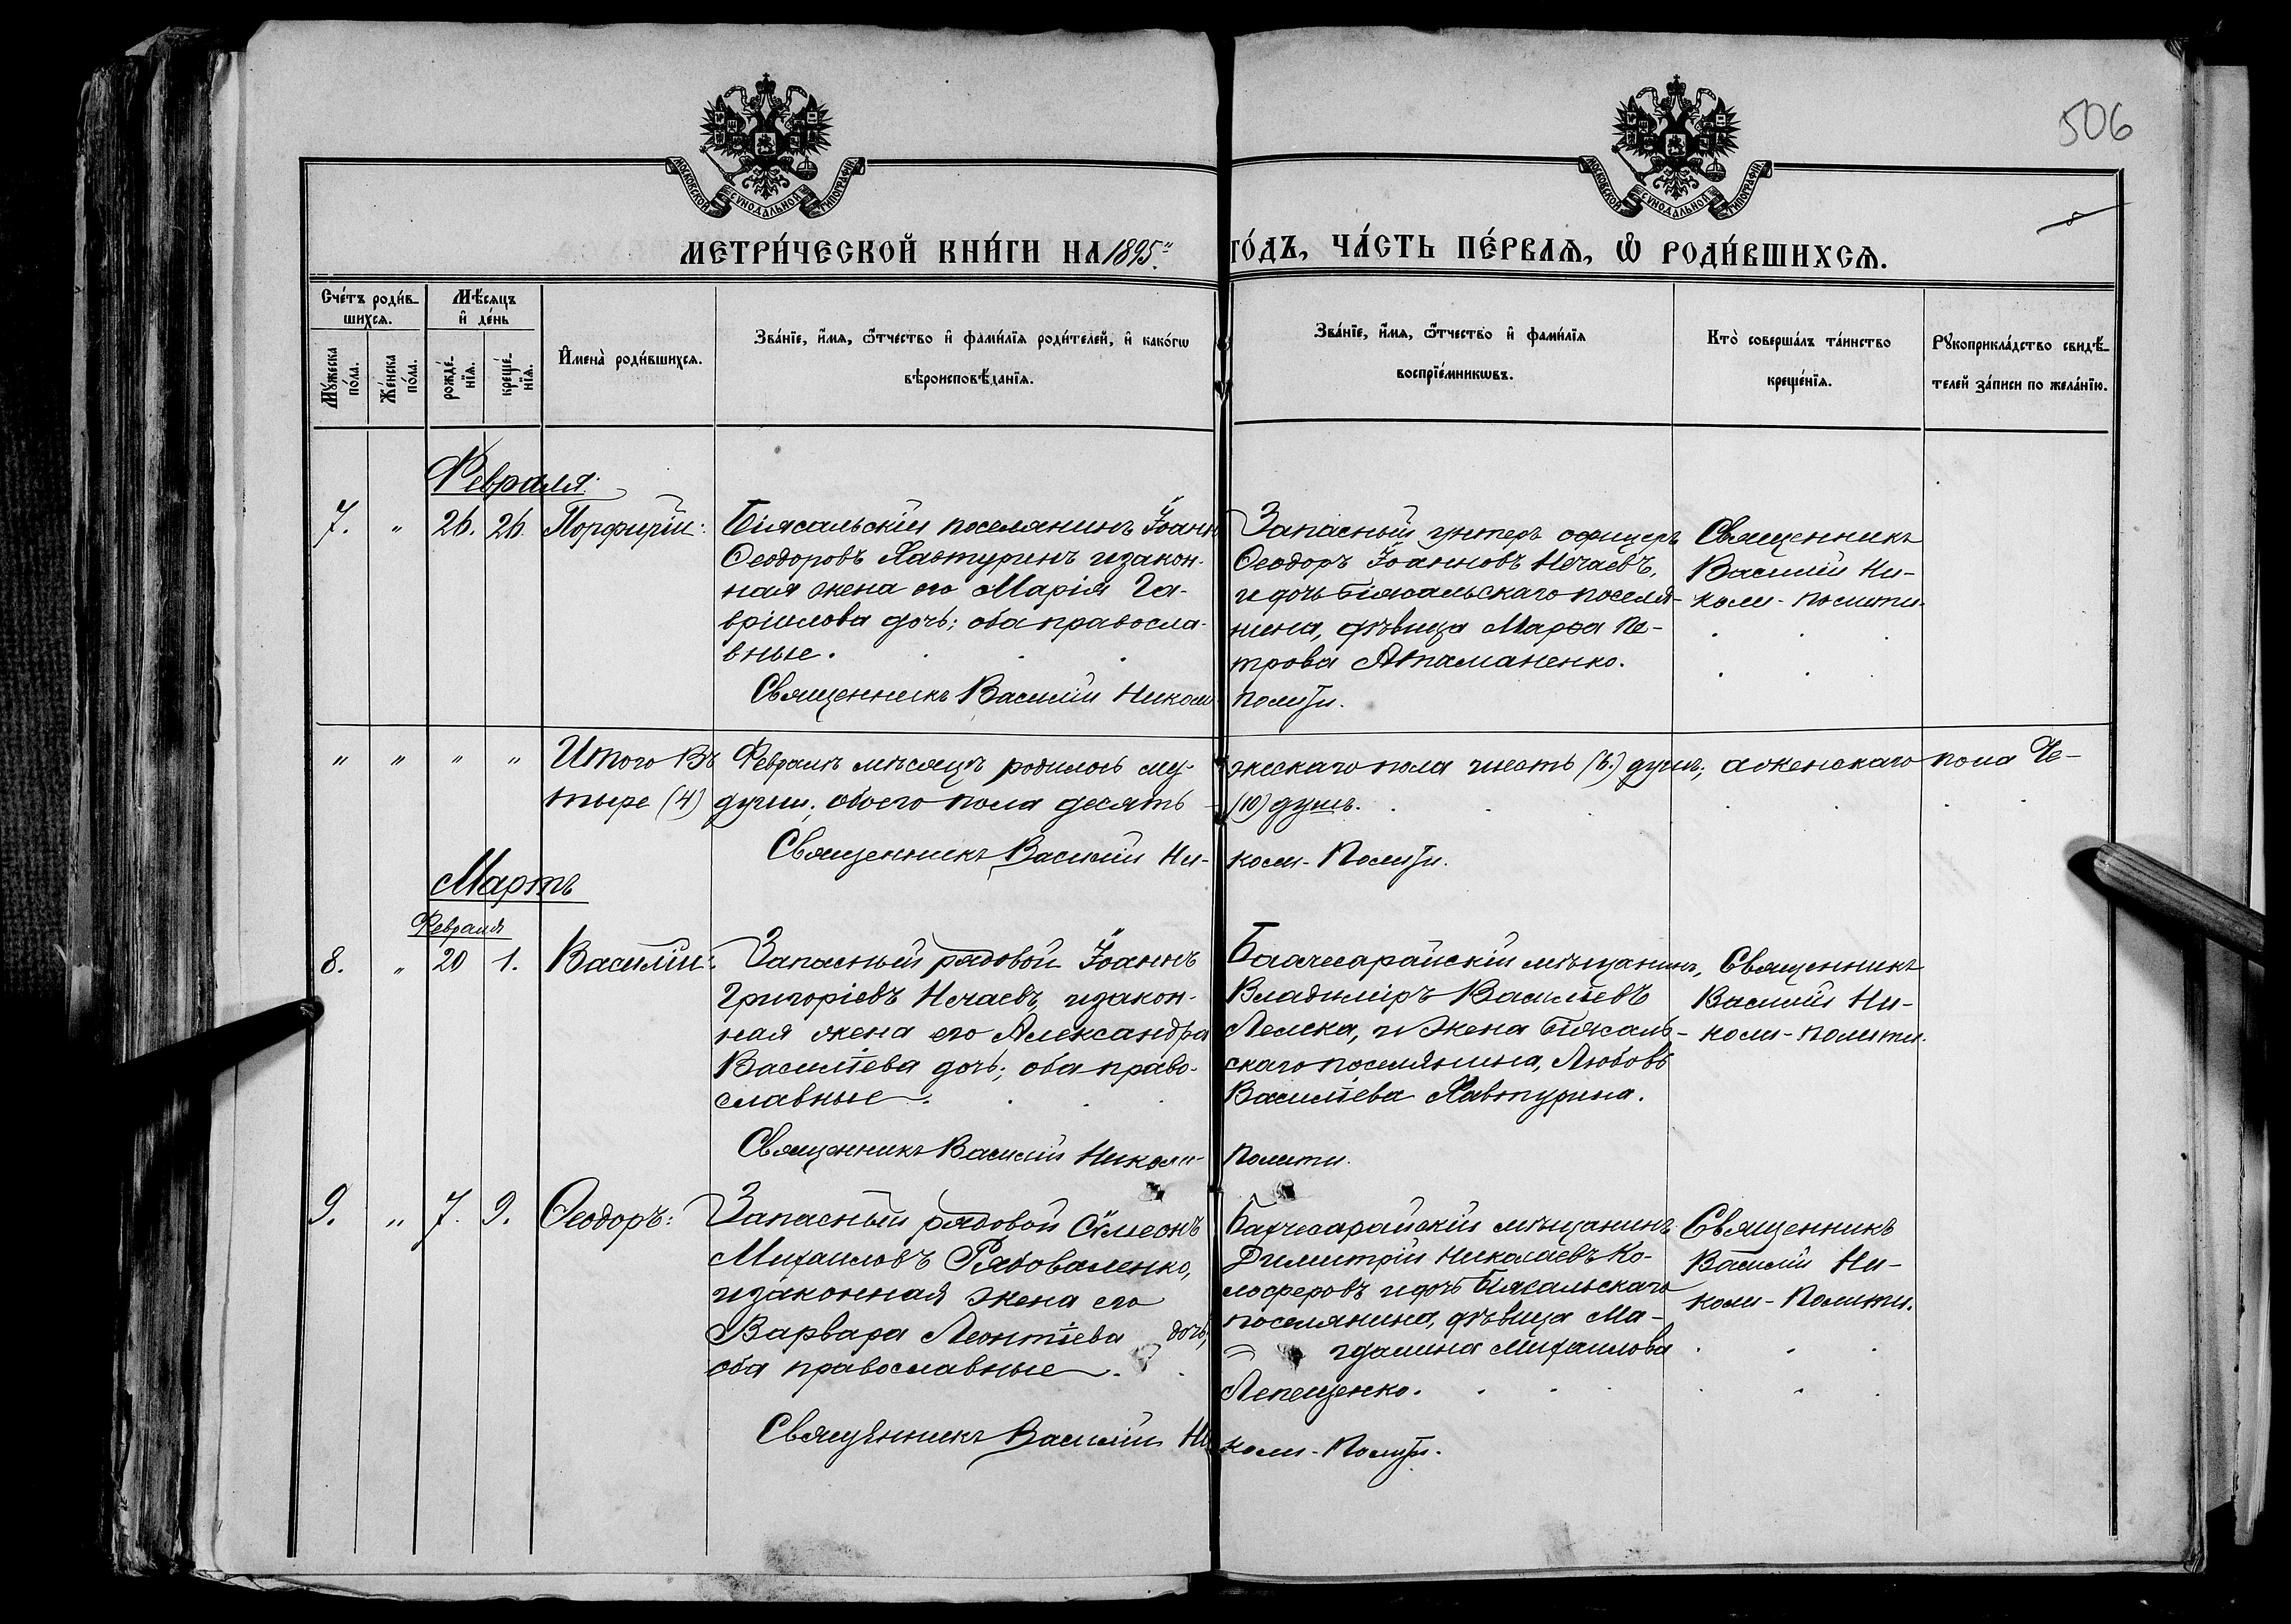 506
МОСКОВСКОЙ СУНОДАЛЬНОЙ ТИПОГРАФІИ
МОСКОВСКОЙ СУНОДАЛЬНОЙ ТИПОГРАФІИ
МЕТРИ́ЧЕСКОЙ КНИ́ГИ НА 1895. ГО́ДЪ, ЧА́СТЬ ПЕ́РВАѦ, Ѽ РОДИ́ВШИХСѦ.
Сче́тъ роди́в-
шихсѧ.
Мѣ́сѧцъ
и҆ де́нь
Мꙋ́жеска
по́ла.
Же́нска
по́ла.
рожде́-
нїѧ.
креще́-
нїѧ.
И҆мена̀ роди́вшихсѧ.
Зва́нїе, и҆́мѧ, ѻ҆́тчество и҆ фами́лїѧ роди́телей, и҆ како́гѡ
вѣроисповѣ́данїѧ.
Зва́нїе, и҆́мѧ, ѻ҆́тчество и҆ фами́лїѧ
воспрїе́мникѡвъ.
Кто̀ соверша́лъ та́инство
креще́нїѧ.
Рꙋкоприкла́дство свидѣ́-
телей за́писи по жела́нїю.
Февраля:
7. " 26. 26. Порфирій:
Біясальскій поселянинъ Іоаннъ
Ѳеодоровъ Хавтуринъ и закон-
ная жена его Марія Га-
вріилова дочь; оба правосла-
вные.
Запасный унтеръ офицеръ
Ѳеодоръ Іоанновъ Нечаевъ,
и дочь Біясальскаго поселя-
нина, дѣвица Марѳа Пе-
трова Атаманенко.
Священникъ
Василій Ни-
коли-Полити.
Священникъ Василій Николи Полити.
" " " " Итого Въ Февралѣ мѣсяцѣ родилось му- жескаго пола шесть (6.) душъ; а женскаго пола Че-
тыре (4) души; обоего пола десять (10) душъ.
Священникъ Василій Ни- коли-Полити.
Мартъ
Февраля
8. " 20 1. Василій:
Запасный рядовой Іоаннъ
Григоріевъ Нечаевъ и закон-
ная жена его Александра
Василіева дочь; оба право-
славные.
Бахчесарайскій мѣщанинъ,
Владиміръ Василіевъ
Лемека, и жена Біясаль-
скаго поселянина, Любовь
Василіева Хавтурина.
Священникъ
Василій Ни-
коли-Полити.
Священникъ Василій Николи- Полити.
9. " 7. 9. Ѳеодоръ:
Запасный рядовой Сѵмеонъ
Михаиловъ Рябоваленко,
и законная жена его
Варвара Леонтіева дочь;
оба православные.
Бахчесарайскій мѣщанинъ
Димитрій Николаевъ Ко-
лосферовъ и дочь Біясальскаго
поселянина, дѣвица Ма-
гдалина Михаилова
Лепещенко.
Священникъ
Василій Ни-
коли-Полити.
Священникъ Василій Ни коли-Полити.